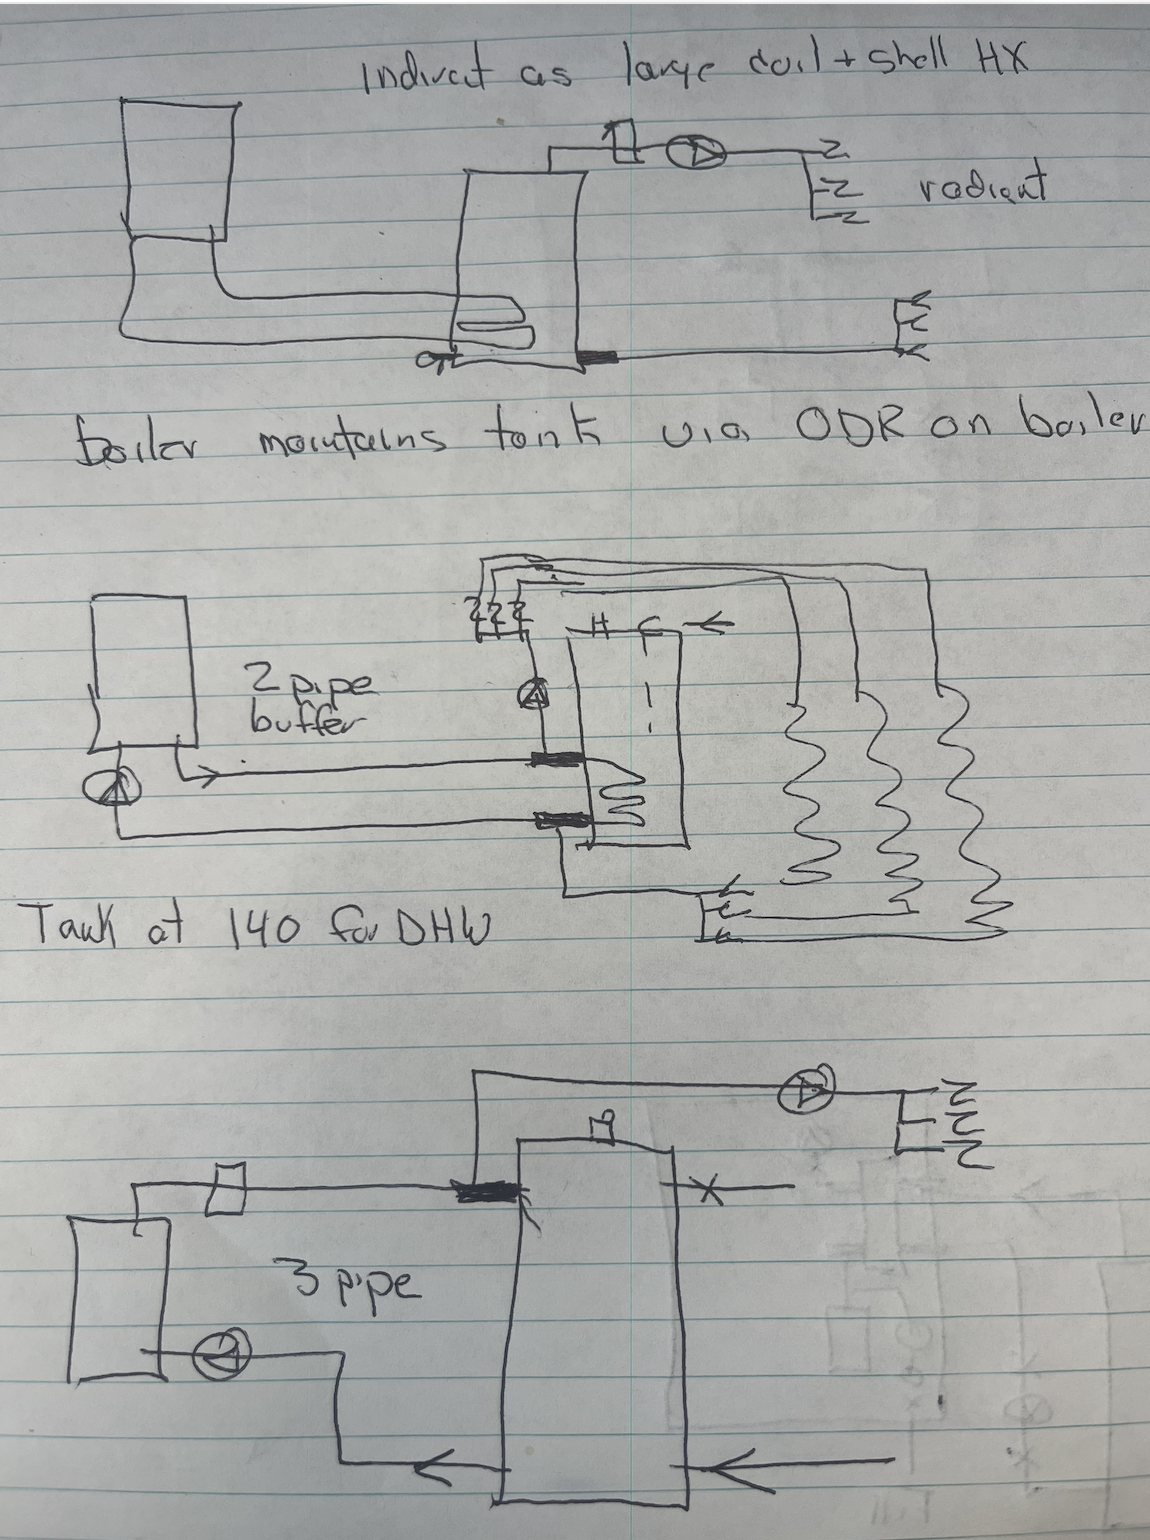 Indirect as large coil + shell HX
radiant
boiler maintains tank via ODR on boiler
H C
2 pipe
buffer
Tank at 140 for DHW
3 pipe